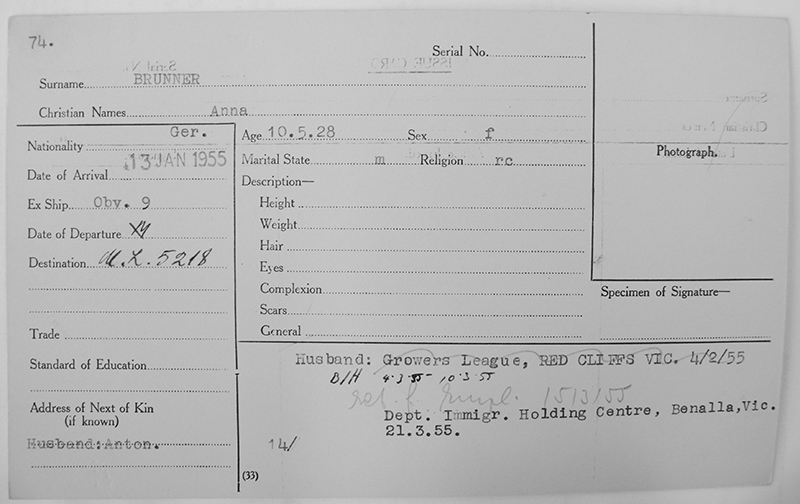 74.
Serial No.
Surname BRUNNER
Christian Names Anna
Nationality Ger.
Date of Arrival 13 JAN 1955
Ex Ship Obv. 9
Date of Departure
Destination M.L. 5218
Trade
Standard of Education
Address of Next of Kin
(if known)
Husband:Anton.
Age 10.5.28 Sex f
Marital State m Religion rc
Description—
Height
Weight
Hair
Eyes
Complexion
Scars
General
Photograph.
Specimen of Signature—
Husband: Growers League, RED CLIFFS VIC. 4/2/55
B/H 4.3.55- 10.3.55
15/3/55
Dept. Immigr. Holding Centre, Benalla,Vic.
21.3.55.
14/
(33)